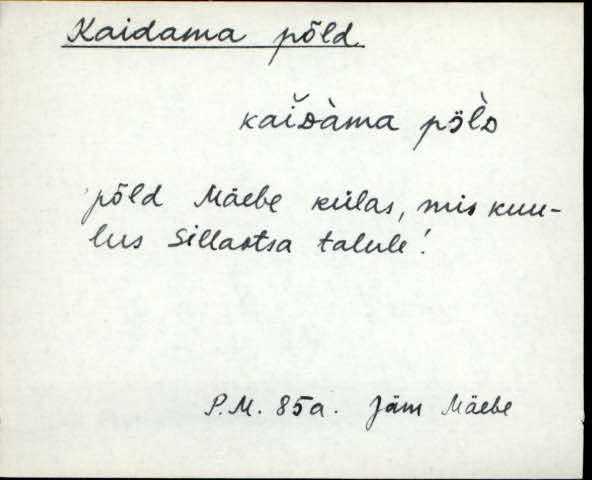 Kaidama põld.
kaĭᴅàma pö̀lᴅ
põld Mäebe külas, mis kuu-
lus Sillaotsa talule!
P.M. 85a. Jäm Mäebe